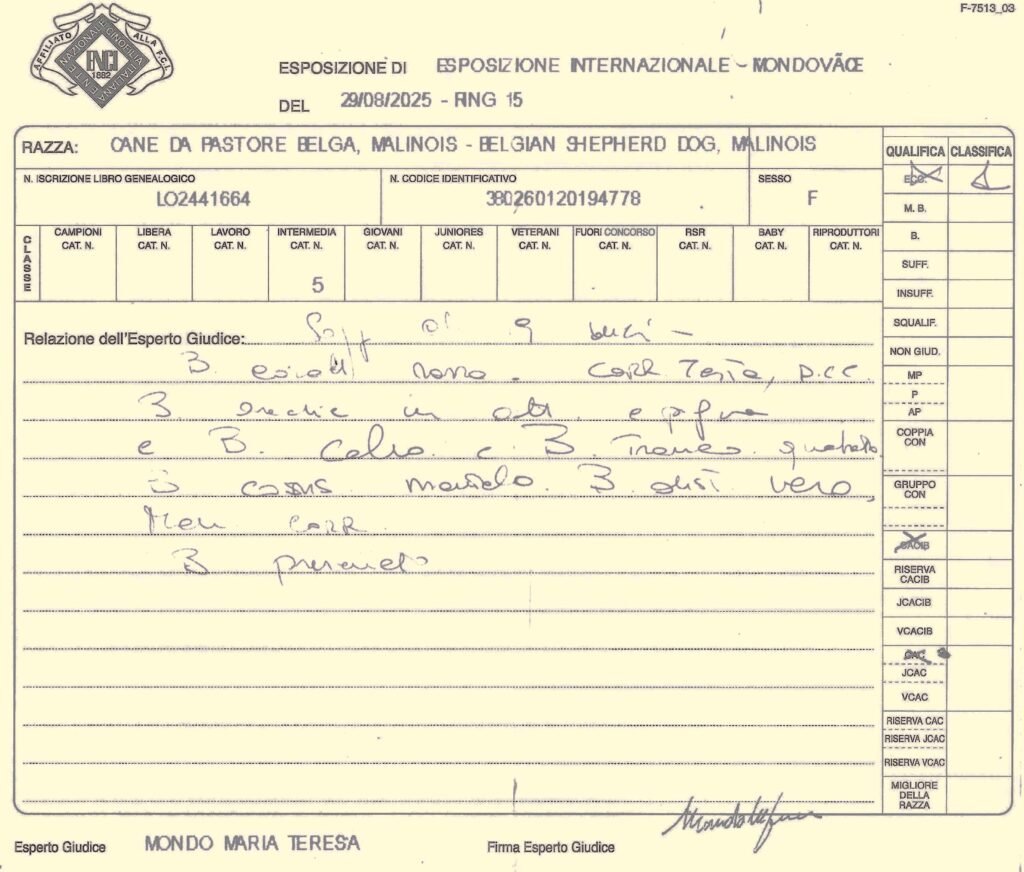 F-7513_03
AFFILIATO ALLA F.C.I.
ENTE NAZIONALE CINOFILIA ITALIANA
ENCI
1882
ESPOSIZIONE DI ESPOSIZIONE INTERNAZIONALE - MONDOVÃŒ
DEL 29/08/2025 - RING 15
RAZZA: CANE DA PASTORE BELGA, MALINOIS - BELGIAN SHEPHERD DOG, MALINOIS
QUALIFICA CLASSIFICA
N. ISCRIZIONE LIBRO GENEALOGICO N. CODICE IDENTIFICATIVO SESSO
LO2441664 380260120194778 F
CLASSE
CAMPIONI CAT. N.
LIBERA CAT. N.
LAVORO CAT. N.
INTERMEDIA CAT. N.
5
GIOVANI CAT. N.
JUNIORES CAT. N.
VETERANI CAT. N.
FUORI CONCORSO CAT. N.
RSR CAT. N.
BABY CAT. N.
RIPRODUTTORI CAT. N.
Relazione dell'Esperto Giudice: Sogg di 9
B. . Corr Testa, p.c.c.
B in
e B. Collo. e B. Tronco
B B vero,
Corr
B
ECC. 1
M. B.
B.
SUFF.
INSUFF.
SQUALIF.
NON GIUD.
MP
P
AP
COPPIA CON
GRUPPO CON
CACIB
RISERVA CACIB
JCACIB
VCACIB
CAC
JCAC
VCAC
RISERVA CAC
RISERVA JCAC
RISERVA VCAC
MIGLIORE DELLA RAZZA
Esperto Giudice MONDO MARIA TERESA Firma Esperto Giudice